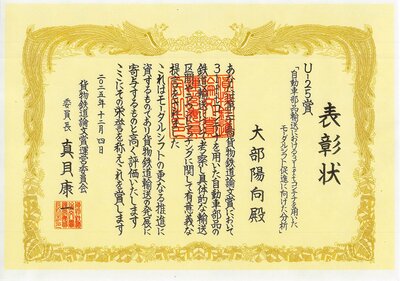 表彰状
U-25賞
「自動車部品輸送における31ftコンテナを用いた
モーダルシフト促進に向けた分析」
大部陽向殿
貨物鉄道論文賞において
を用いた自動車部品の
鉄道輸送について考察し具体的な輸送
に関して有意義な
提
これはモーダルシフトの更なる推進に
資するものであり貨物鉄道輸送の発展に
寄与するものと高く評価いたします
ここにその栄誉を称えこれを賞します
二〇二五年十二月四日
貨物鉄道論文賞運営委員会
委員長 真貝康一